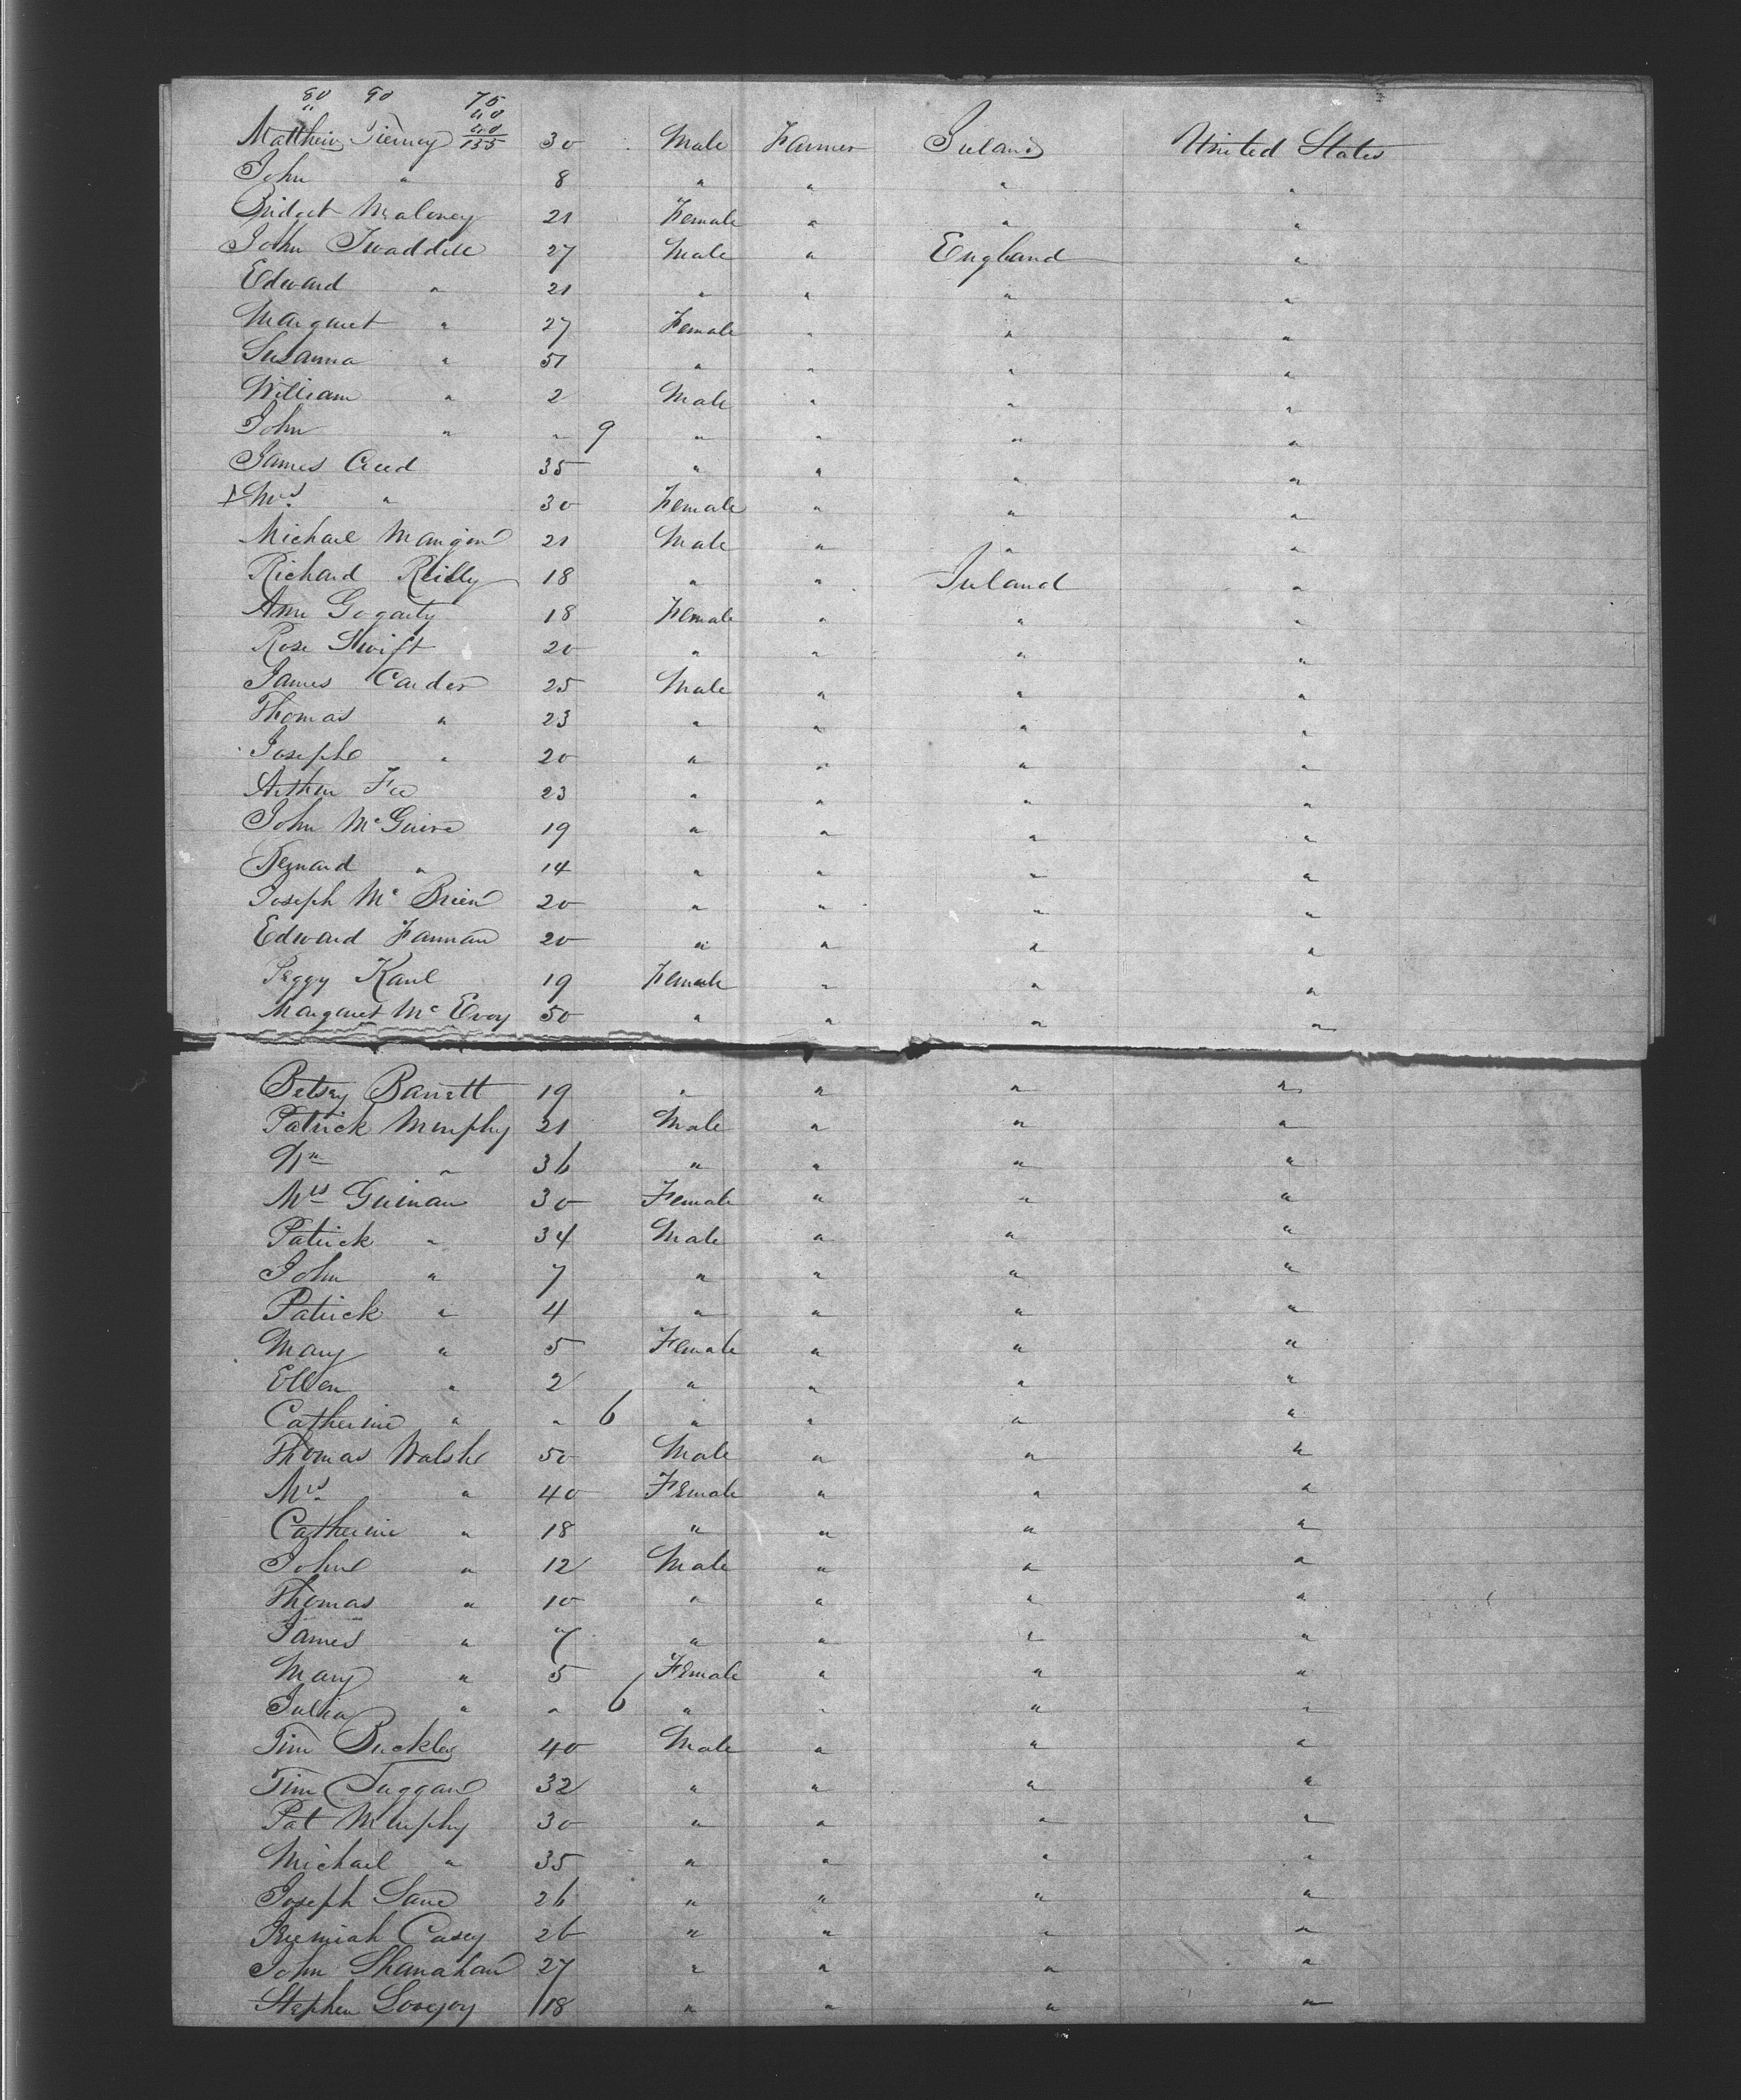 80 90 75
" 40
Matthew Tierney 40 30 Male Farmer Ireland United States
135
John " 8 " " " "
Bridget Maloney 21 Female " " "
John Twaddell 27 Male " England "
Edward " 21 " " " "
Margaret " 27 Female " " "
Susanna " 51 " " " "
William " 2 Male " " "
John " " 9 " " " "
James Creed 35 " " " "
+ Mrs " 30 Female " " "
Michael Mangin 21 Male " " "
Richard Reilly 18 " " Ireland "
Ann Gogarty 18 Female " " "
Rose Swift 20 " " " "
James Carder 25 Male " " "
Thomas " 23 " " " "
Joseph " 20 " " " "
Arthur Fee 23 " " " "
John McGuire 19 " " " "
Bernard " 14 " " " "
Joseph McBrien 20 " " " "
Edward Fannan 20 " " " "
Peggy Kane 19 Female " " "
Margaret McEvoy 50 " " " "
Betsey Barrett 19 " " " "
Patrick Murphy 21 Male " " "
Wm " 36 " " " "
Mrs Guinan 30 Female " " "
Patrick " 34 Male " " "
John " 7 " " " "
Patrick " 4 " " " "
Mary " 5 Female " " "
Ellen " 2 " " " "
Catherine " " 6 " " " "
Thomas Walsh 50 Male " " "
Mrs " 40 Female " " "
Catherine " 18 " " " "
John " 12 Male " " "
Thomas " 10 " " " "
James " 7 " " " "
Mary " 5 Female " " "
Julia " " 6 " " " "
Tim Buckley 40 Male " " "
Tim Duggan 32 " " " "
Pat Murphy 30 " " " "
Michael " 35 " " " "
Joseph Lane 26 " " " "
Jeremiah Casey 26 " " " "
John Shanahan 27 " " " "
Stephen Lovejoy 18 " " " "